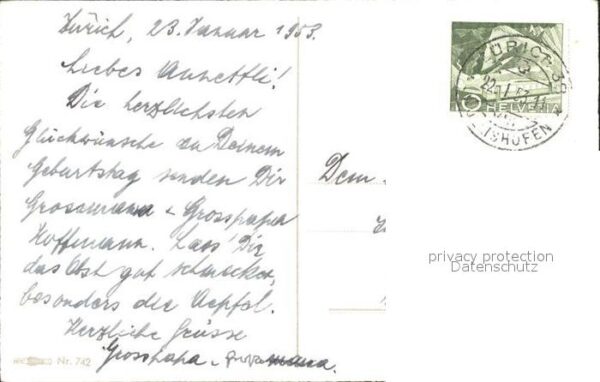 Zürich, 23. Januar 1953.
Liebes Annettli!
Die herzlichsten
Glückwünsche zu Deinem
Geburtstag senden Dir
Grossmama & Grosspapa
Hoffmann. Lass Dir
das Obst gut schmecken,
besonders die Aepfel.
Herzliche Grüsse
Grosspapa - Grossmama.
Nr. 742
Dem
ZÜRICH 38
HELVETIA
10
privacy protection
Datenschutz